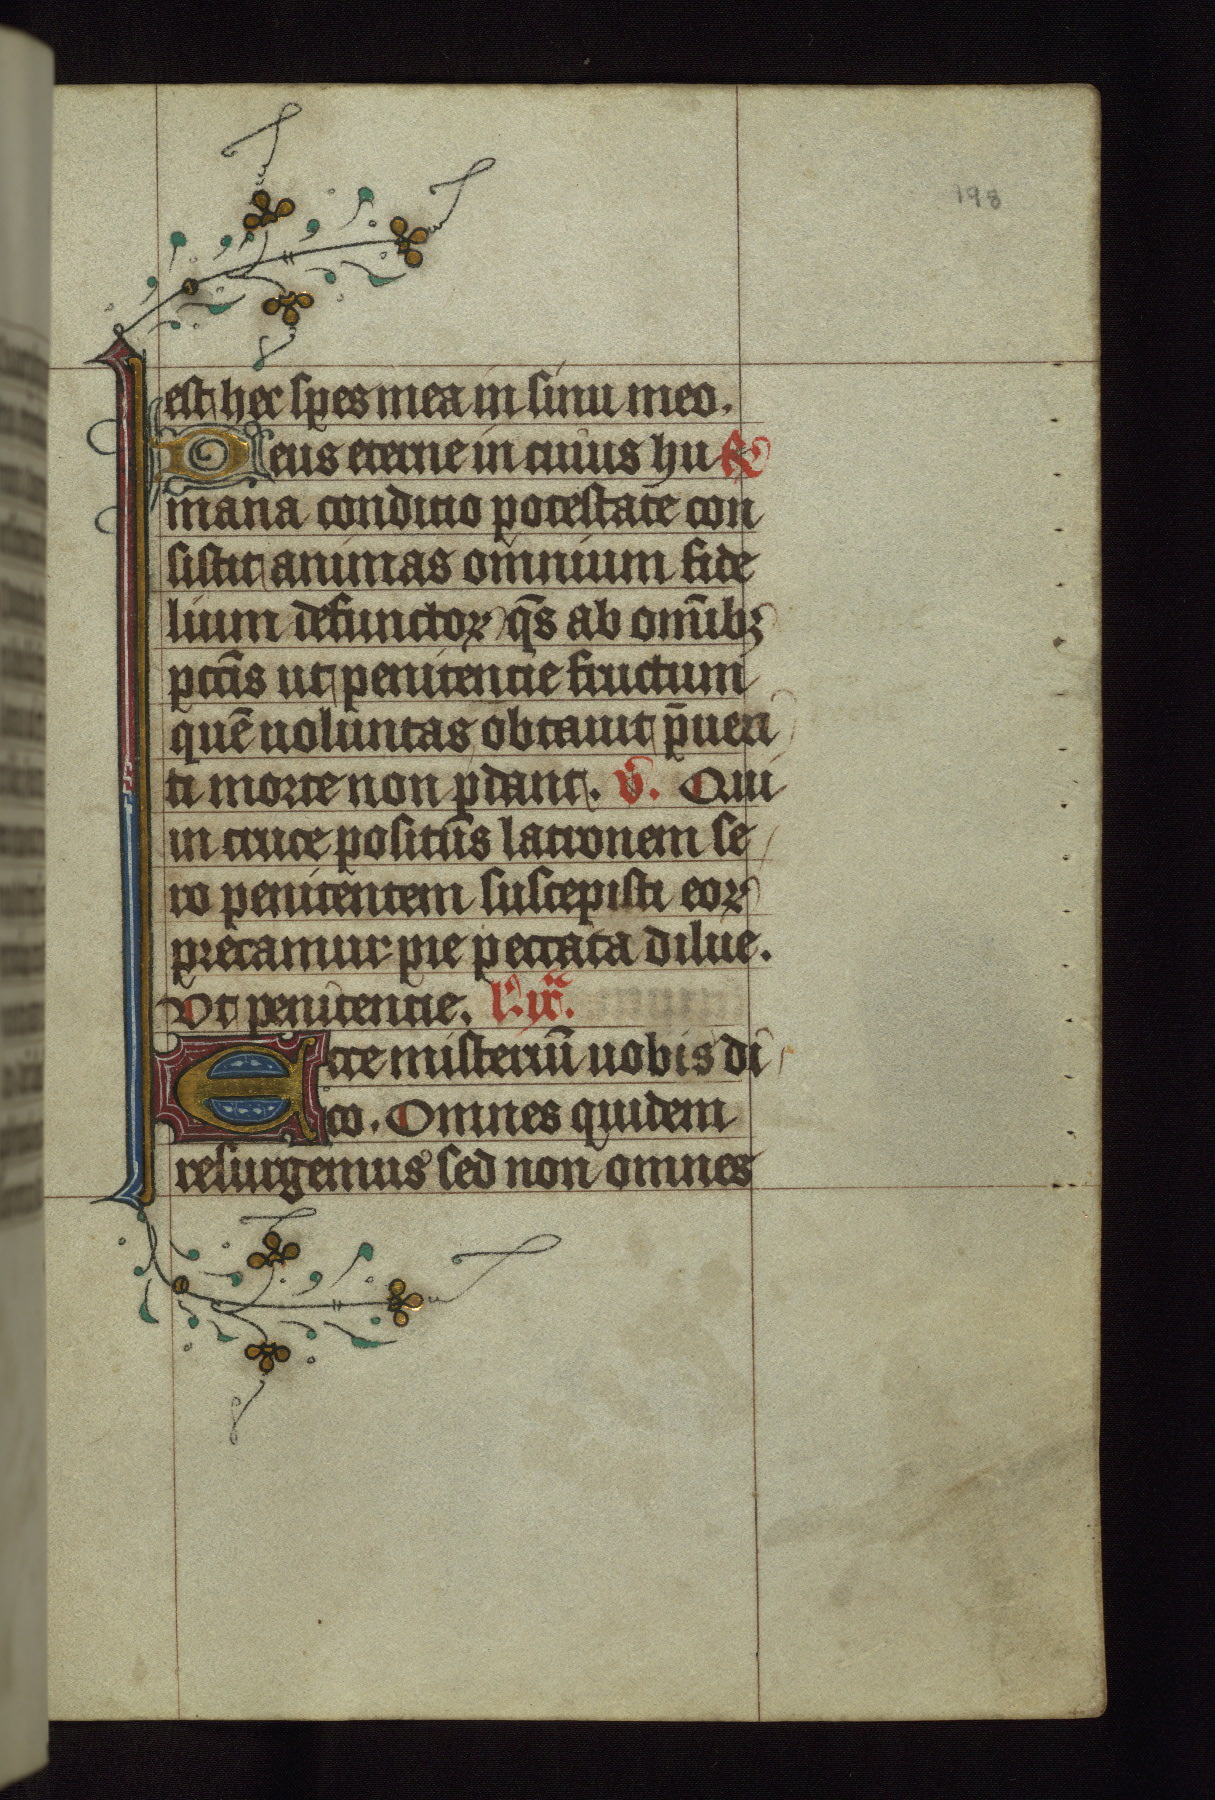 198
est hec spes mea in sinu meo.
Deus eterne in cuius hu R
mana conditio potestate con
sistit animas omnium fide
lium defunctoꝝ q̄s ab om̄ibꝫ
pctīs ut penitencie fructum
quē uoluntas obtauit p̄uen
ti morte non ꝑdant. v̄. Qui
in cruce positus latronem se
ro penitentem suscepisti eoꝝ
precamur pie peccata dilue.
Ut penitencie. l'. ix.
Ecce misteriū uobis di
co. Omnes quidem
resurgemus sed non omnes